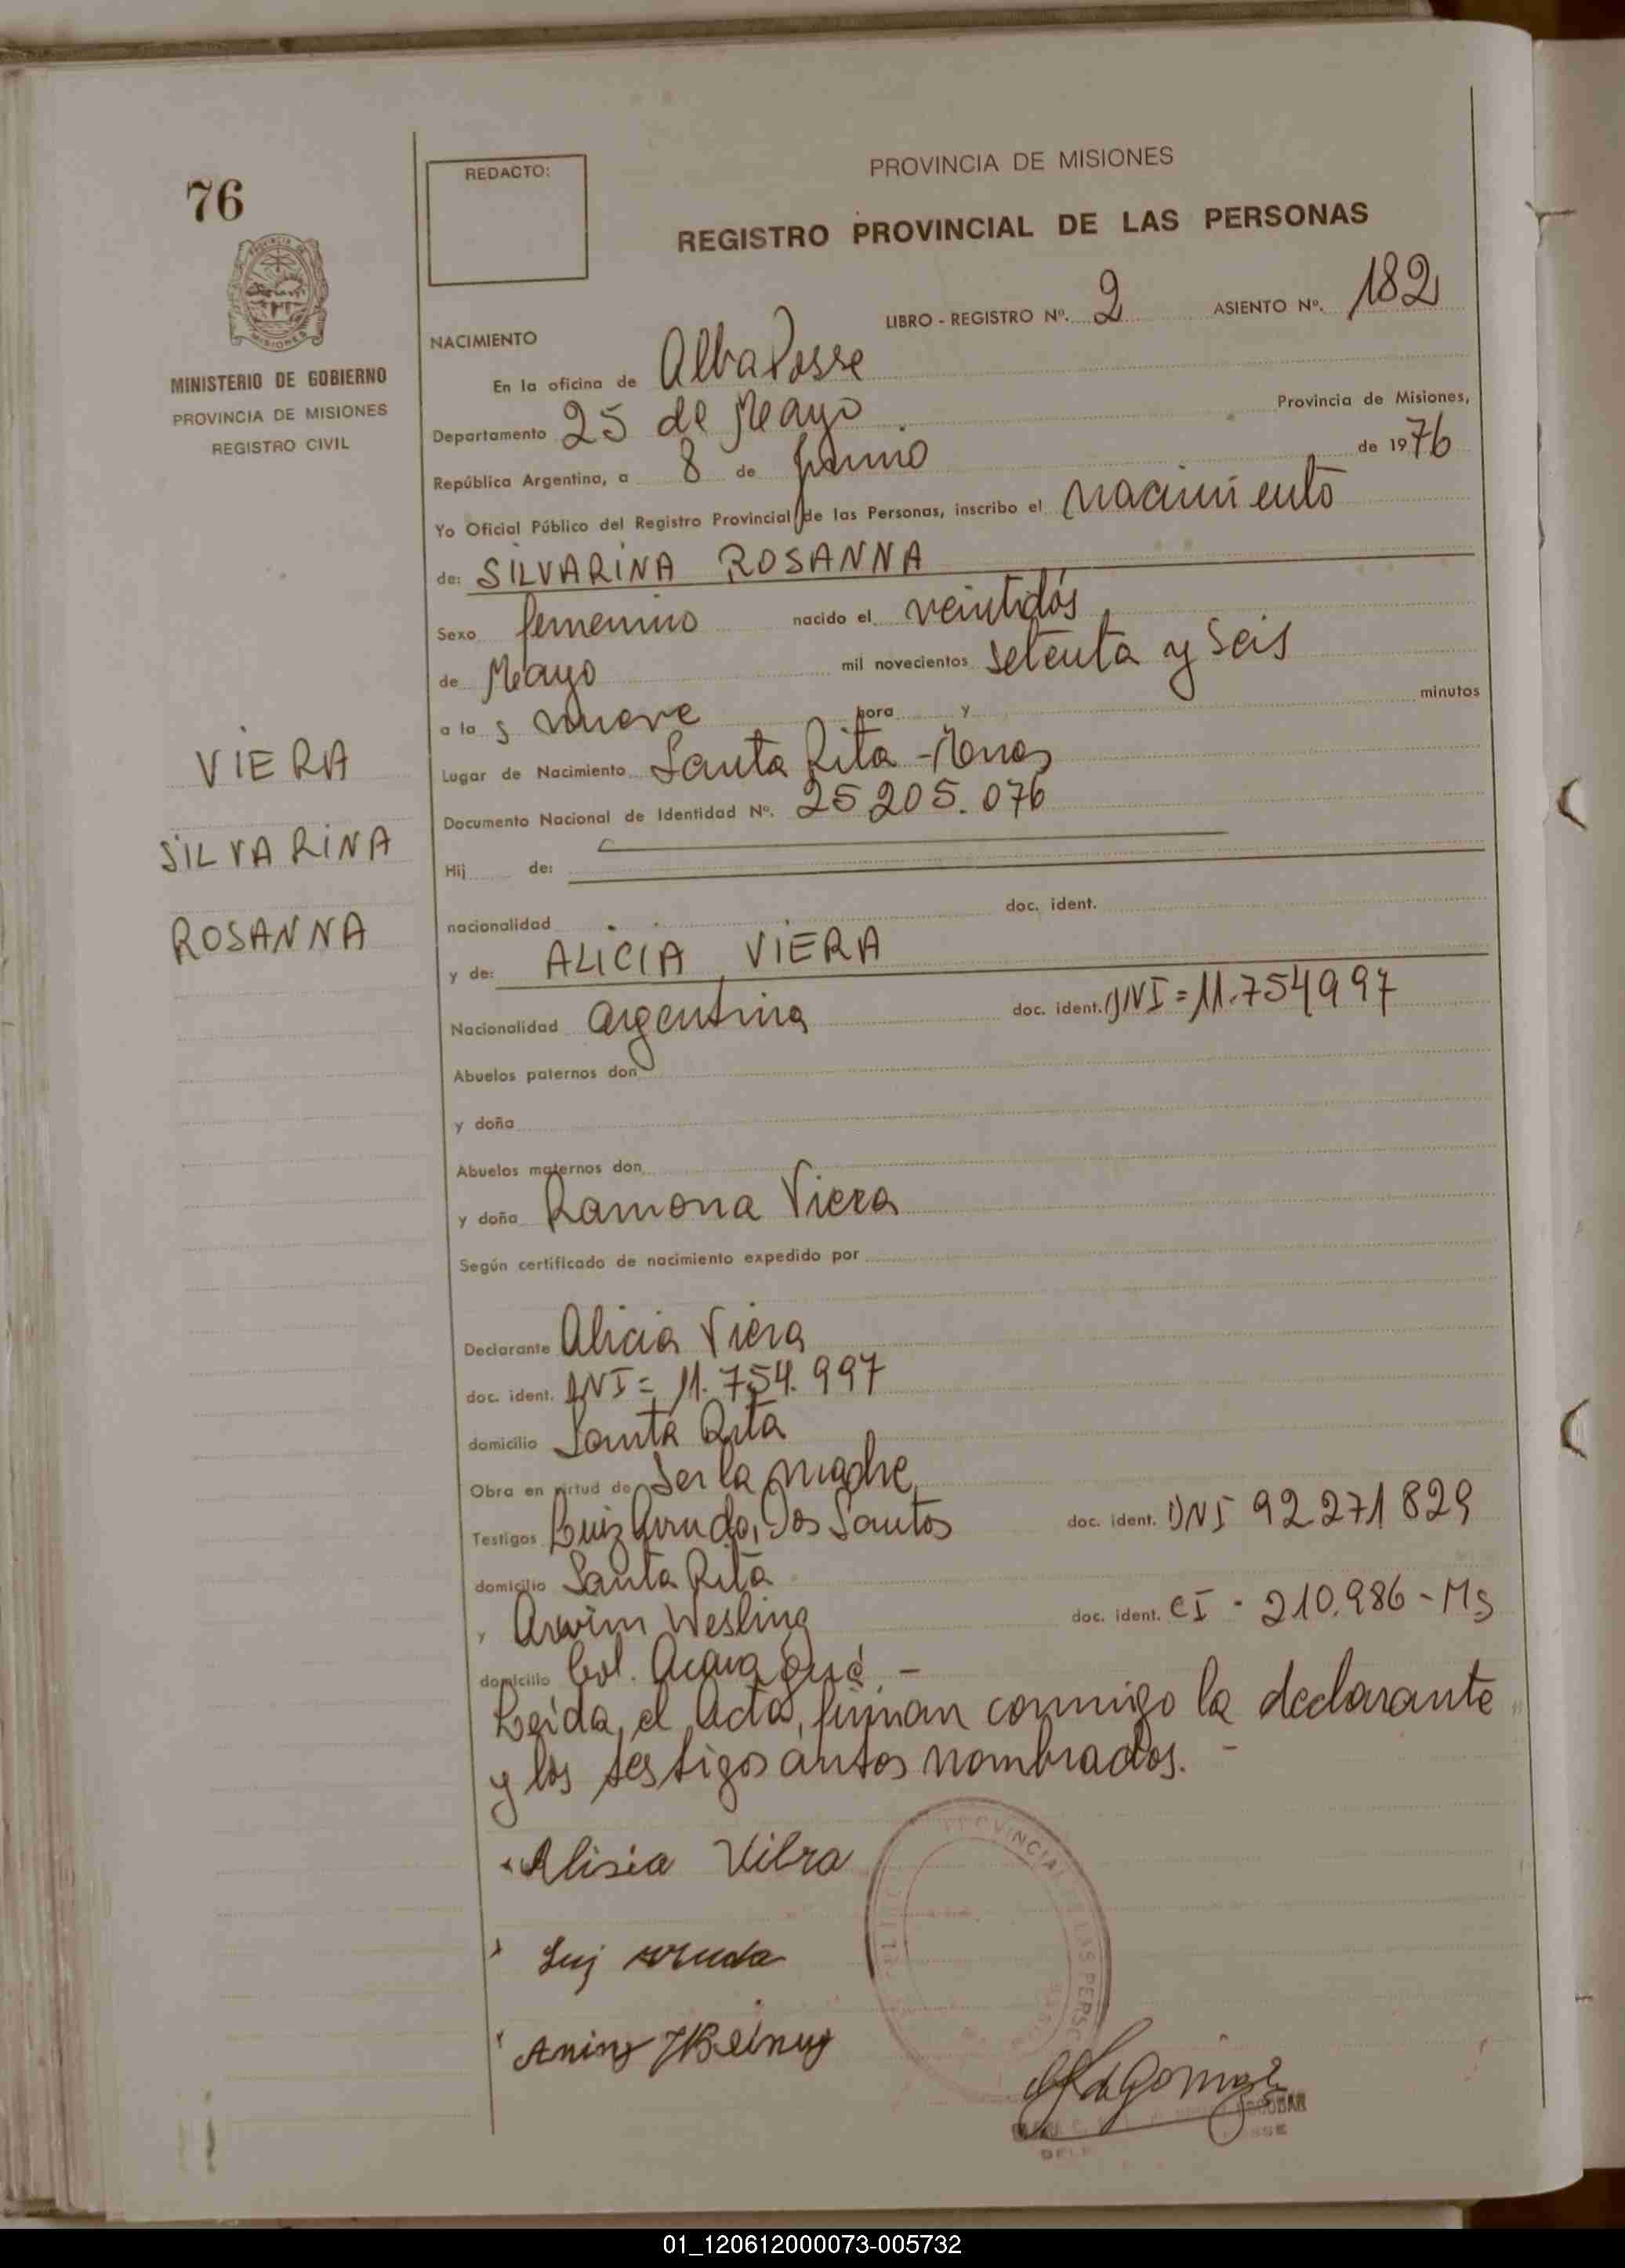 76
REDACTO:
PROVINCIA DE MISIONES
REGISTRO PROVINCIAL DE LAS PERSONAS
MINISTERIO DE GOBIERNO
PROVINCIA DE MISIONES
REGISTRO CIVIL
LIBRO - REGISTRO Nº. 2 ASIENTO Nº. 182
NACIMIENTO
En la oficina de Alba Posse
Departamento 25 de Mayo Provincia de Misiones,
República Argentina, a 8 de Junio de 1976
Yo Oficial Público del Registro Provincial de las Personas, inscribo el nacimiento
de: SILVARINA ROSANNA
Sexo femenino nacido el veintidós
de Mayo mil novecientos setenta y seis
a la s nueve hora y minutos
Lugar de Nacimiento Santa Rita -
Documento Nacional de Identidad Nº. 25 205.076
Hij de:
nacionalidad doc. ident.
y de: ALICIA VIERA
Nacionalidad argentina doc. ident. DNI = 11.754997
Abuelos paternos don
y doña
Abuelos maternos don
y doña Ramona Viera
Según certificado de nacimiento expedido por
Declarante Alicia Viera
doc. ident. DNI = 11.754.997
domicilio Santa Rita
Obra en virtud de Ser la madre
Testigos Luiz Arruda, Dos Santos doc. ident. DNI 92 271 829
domicilio Santa Rita
y Arwim Wesling doc. ident. CI - 210.986 - Ms
domicilio Col. Acaraguá -
Leída el Acta, firman conmigo la declarante
y los testigos antes nombrados. -
VIERA
SILVARINA
ROSANNA
Alisia Vilra
Luij arruda
PROVINCIAL DE LAS PERSO
01_120612000073-005732